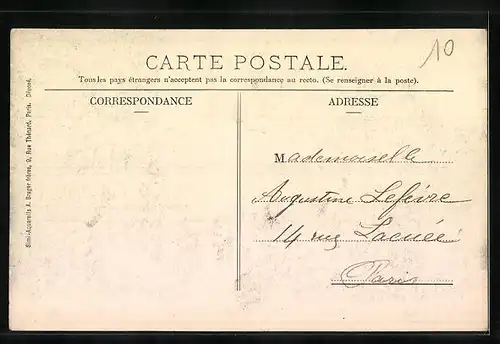 10
CARTE POSTALE.
Tous les pays étrangers n'acceptent pas la correspondance au recto. (Se renseigner à la poste).
CORRESPONDANCE
ADRESSE
Mademoiselle
Augustine Lefèvre
14 rue Lacuée
Paris
Simi-Aquarelle A. Breger frères, 9, Rue Thénard, Paris. Déposé.